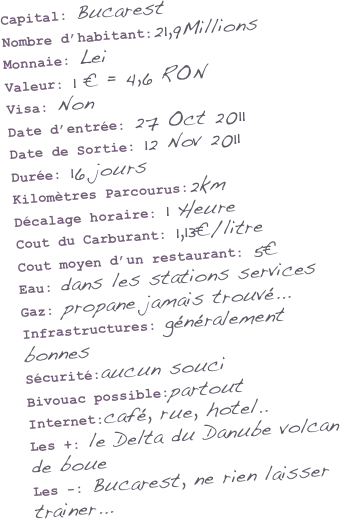 Capital: Bucarest
Nombre d'habitant: 21,9 Millions
Monnaie: Lei
Valeur: 1 € = 4,6 RON
Visa: Non
Date d'entrée: 27 Oct 2011
Date de Sortie: 12 Nov 2011
Durée: 16 jours
Kilomètres Parcourus: 2km
Décalage horaire: 1 Heure
Cout du Carburant: 1,13€/litre
Cout moyen d'un restaurant: 5€
Eau: dans les stations services
Gaz: propane jamais trouvé...
Infrastructures: généralement
bonnes
Sécurité: aucun souci
Bivouac possible: partout
Internet: café, rue, hotel..
Les +: le Delta du Danube volcan
de boue
Les -: Bucarest, ne rien laisser
trainer...